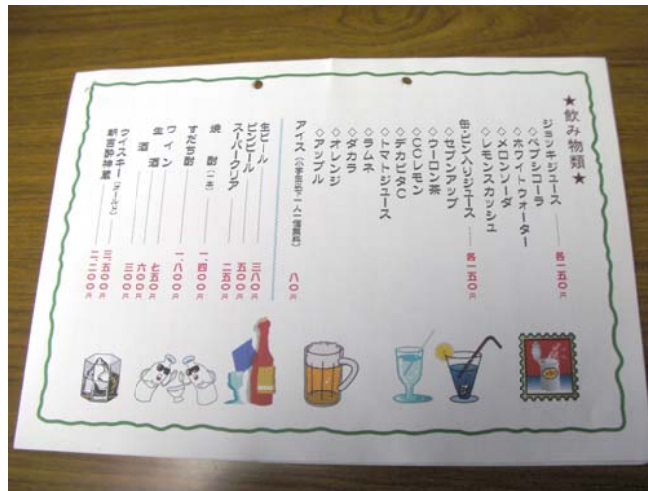 ★飲み物類★
ジョッキジュース……各一五〇円
◇ペプシコーラ
◇ホワイトウォーター
◇メロンソーダ
◇レモンスカッシュ
缶・ビン入りジュース……各一五〇円
◇セブンアップ
◇ウーロン茶
◇CCレモン
◇デカビタC
◇トマトジュース
◇ラムネ
◇ダカラ
◇オレンジ
◇アップル
アイス(小学生以下一人一個無料) 八〇円
生ビール……三八〇円
ビンビール……五〇〇円
スーパークリア……二五〇円
焼 酎(一本)……一、四〇〇円
すだち酎……一、八〇〇円
ワイン……七五〇円
生 酒……六〇〇円
酒……三〇〇円
ウイスキー(オールド)……三、五〇〇円
二、二〇〇円